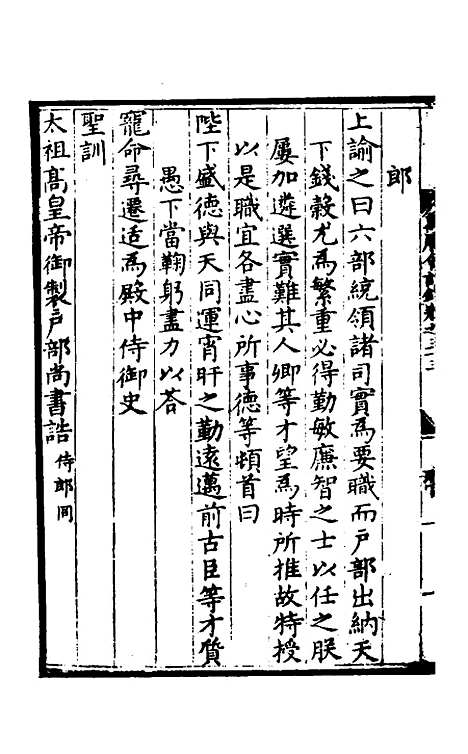 郎
上諭之曰六部統領諸司實爲要職而户部出納天
下錢榖尤爲繁重必得勤敏廉智之士以任之朕
屢加遴選實難其人卿等才望爲時所推故特授
以是職宜各盡心所事德等頓首曰
陛下盛德與天同運宵旰之勤遠邁前古臣等才質
愚下當鞠躬盡力以荅
寵命尋遷适爲殿中侍御史
聖訓
太祖髙皇帝御製户部尚書誥侍郎同